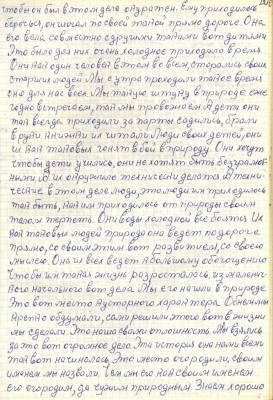 чтобы он был в этом деле аккуратен. Ему приходилось
бороться, он шагал по своей такой прямо дороге. Она
его вела совместно с другими такими вот детьми
Это было для них очень холодное приходило время.
Они как один человек в этом во всём, старались своих
старших людей Мы с утра проходили такое время
оно для нас всех. Мы такую штуку в природе еже
годно встречаем, как мы провожаем А дети они
так всегда приходили за парты садились, брали
в руки книжки их читали Люди своих детей, они
их как таковых гонят в бой в природу. Они хотят
чтобы дети учились, они не хотят быть безграмот
ными Их окружило технически делать А техни
ческие в этом деле люди, этим людям приходилось
так быть, как им приходилось от природы своим
телом терпеть. Они воды холодной все боятся Их
как таковых людей природа она ведёт по дороге
прямо, со своим этим вот развитием, со своею
мыслею. Она их всех ведёт к большому обогащению
Чтобы им такая жизнь разросталась, из маленько
го начального вот дела. Мы его нашли в природе
Это вот место Чувилкин бугор характера. Обменным
крепко обдумали, сами решили этого вот в жизни
мы сделали. Это наша с вами оплошность Мы взялись
за это вот огромное дело Эта история она нами всеми
так вот начиналась. Это место огородили, своим
именем мы назвали. Чем мы его как своим именем
его огородим, да чужим природным Знаем хорошо